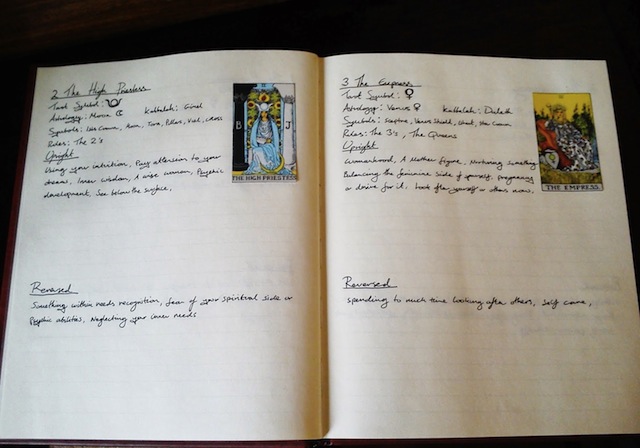 2 The High Priestess
Tarot Symbol:
Astrology: Moon Kabbalah: Gimel
Symbols: Crown, Moon, Tora, Pillars, Veil, Cross
Rules: The 2's
Upright
Using your intuition, Pay attension to your
dreams, Inner wisdom, A wise woman, Psychic
development, See below the surface,
Reversed
Something within needs recognition, fear of your spiritual side or
Psychic abilities, Neglecting your inner needs
B J
THE HIGH PRIESTESS
3 The Empress
Tarot Symbol: ♀
Astrology: Venus ♀ Kabbalah: Daleth
Symbols: Sceptre, Venus Shield, Wheat, Crown
Rules: The 3's, The Queens
Upright
Womanhood, A Mother figure, Nurturing something
Balancing the feminine side of yourself, pregnancy
or desire for it, Look after yourself or others now,
Reversed
spending to much time looking after others, self care,
THE EMPRESS.